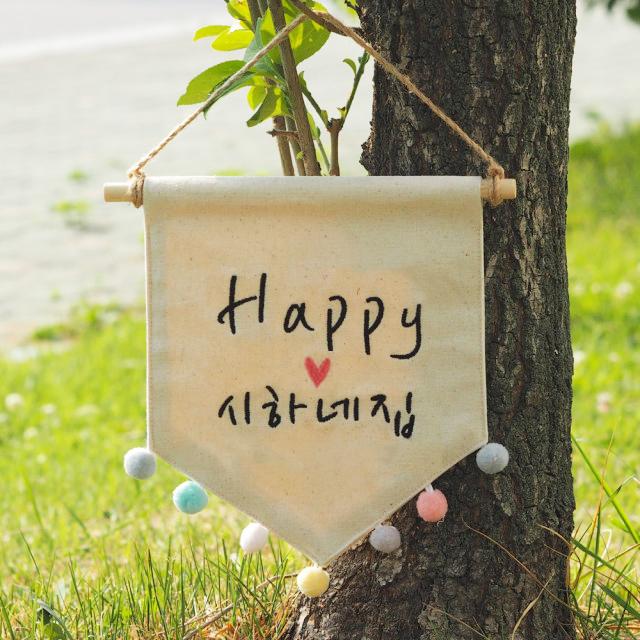 Happy
시하네집